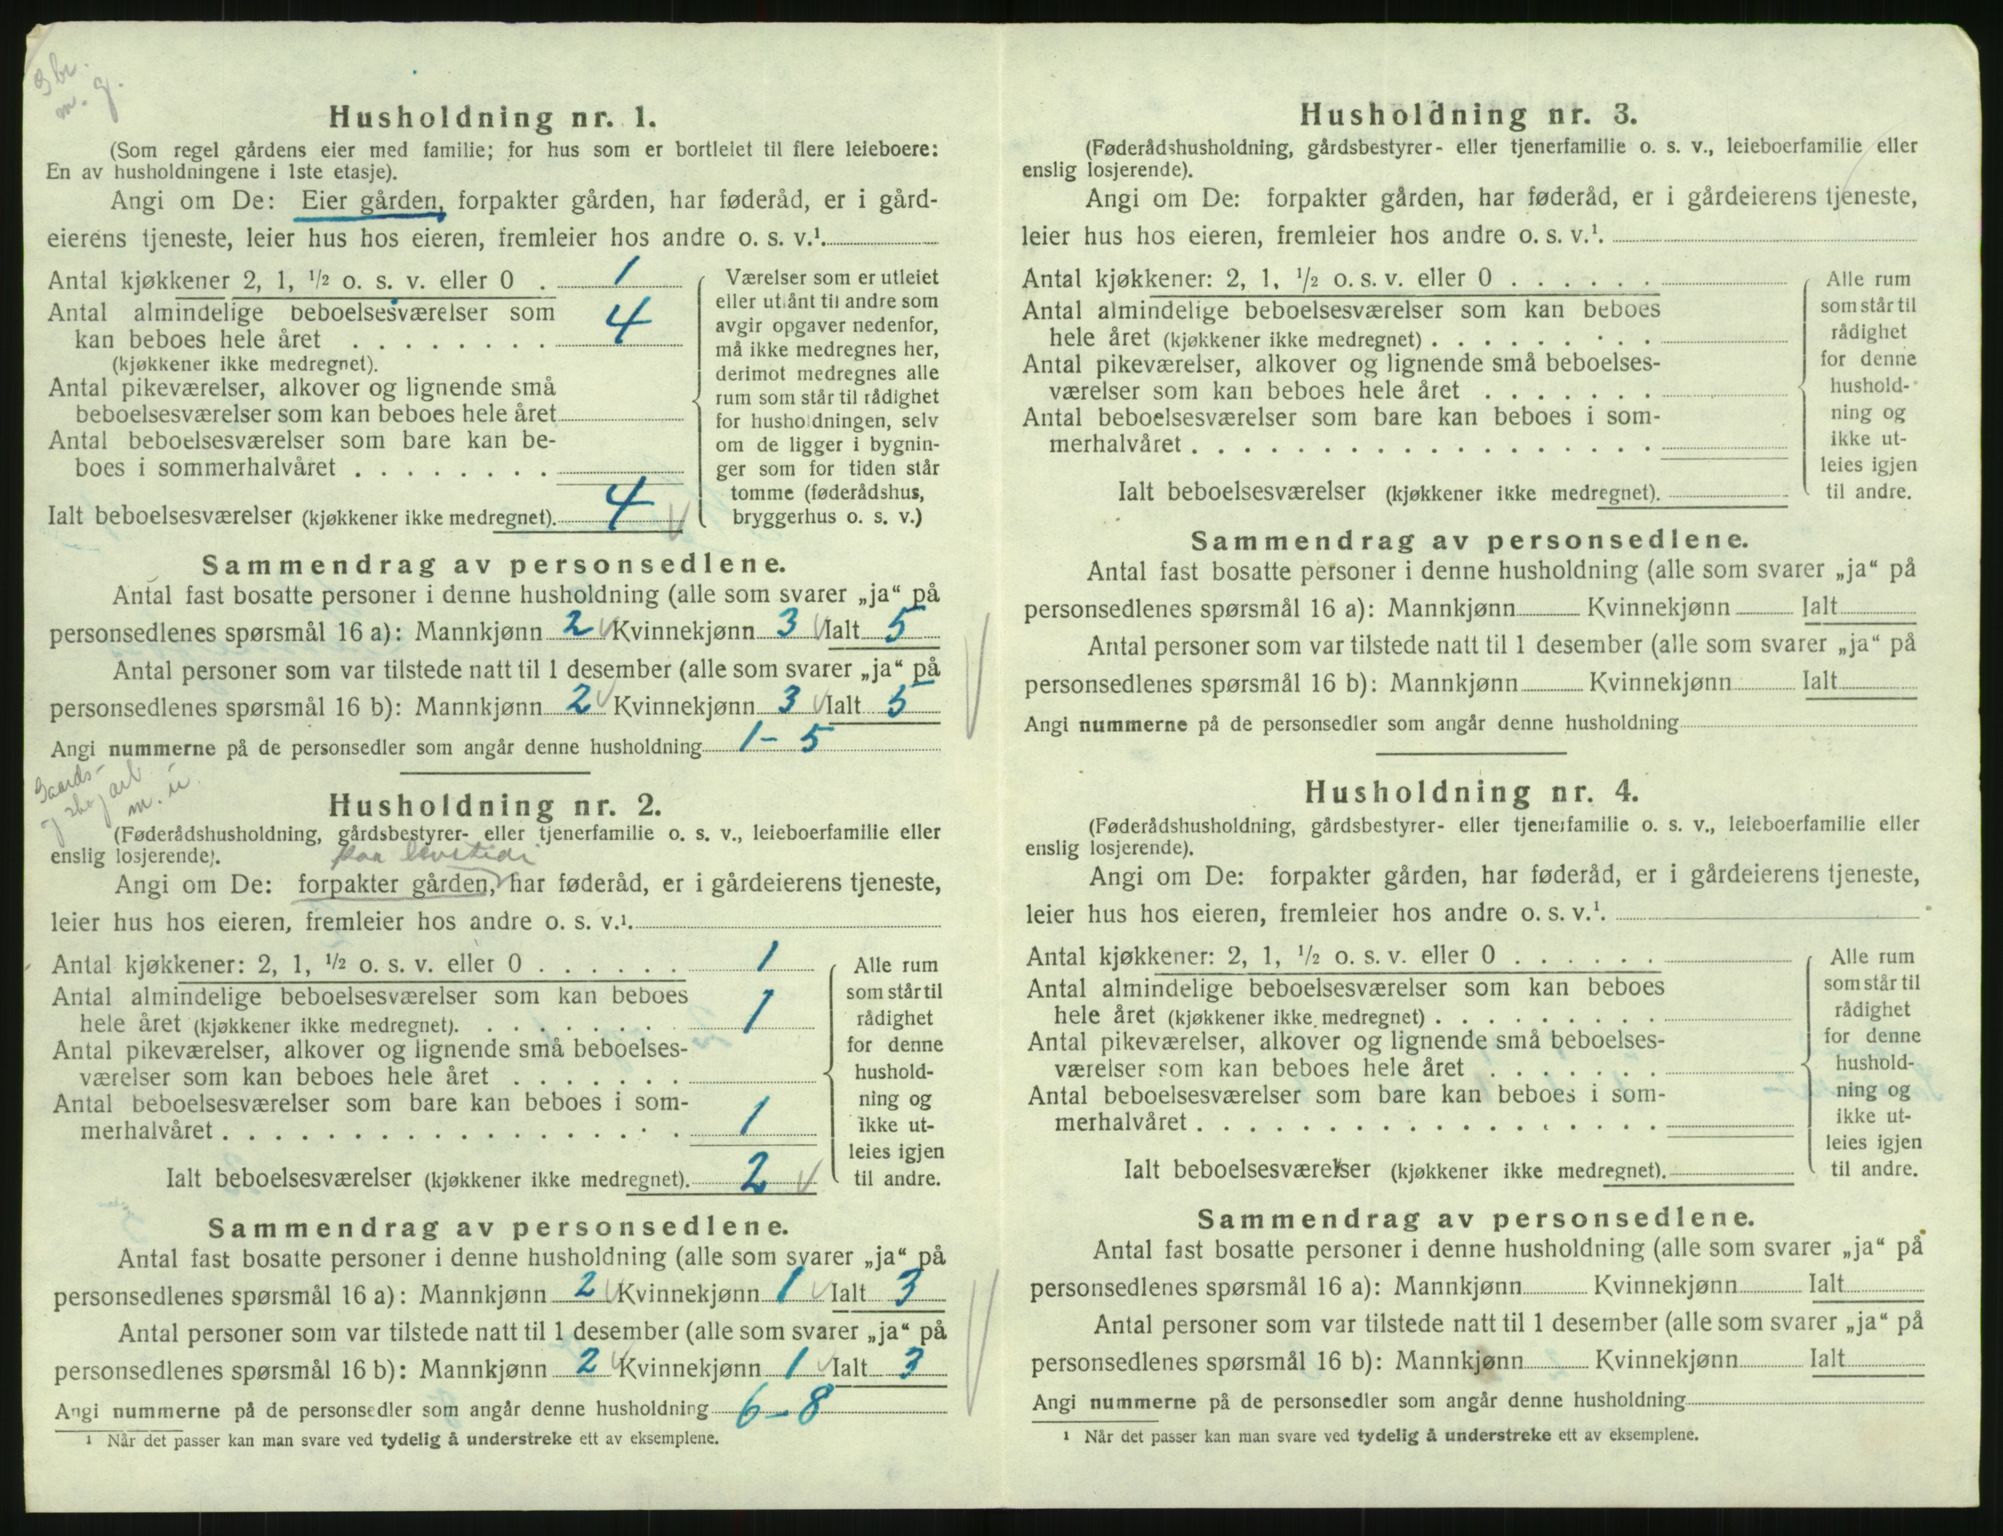 3 br.
m. g.
Husholdning nr. 1.
(Som regel gårdens eier med familie; for hus som er bortleiet til flere leieboere:
En av husholdningene i 1ste etasje).
Angi om De: Eier gården, forpakter gården, har føderåd, er i gård-
eierens tjeneste, leier hus hos eieren, fremleier hos andre o. s. v.¹.
Antal kjøkkener 2, 1, ½ o. s. v. eller 0 . 1
Antal almindelige beboelsesværelser som
kan beboes hele året . . . . . . . . 4
(kjøkkener ikke medregnet).
Antal pikeværelser, alkover og lignende små
beboelsesværelser som kan beboes hele året
Antal beboelsesværelser som bare kan be-
boes i sommerhalvåret . . . . . . . .
Ialt beboelsesværelser (kjøkkener ikke medregnet). 4
Værelser som er utleiet
eller utlånt til andre som
avgir opgaver nedenfor,
må ikke medregnes her,
derimot medregnes alle
rum som står til rådighet
for husholdningen, selv
om de ligger i bygnin-
ger som for tiden står
tomme (føderådshus,
bryggerhus o. s. v.)
Sammendrag av personsedlene.
Antal fast bosatte personer i denne husholdning (alle som svarer „ja“ på
personsedlenes spørsmål 16 a): Mannkjønn 2 Kvinnekjønn 3 Ialt 5
Antal personer som var tilstede natt til 1 desember (alle som svarer „ja“ på
personsedlenes spørsmål 16 b): Mannkjønn 2 Kvinnekjønn 3 Ialt 5
Angi nummerne på de personsedler som angår denne husholdning 1 – 5
Gaards-
m. u.
Husholdning nr. 2.
(Føderådshusholdning, gårdsbestyrer- eller tjenerfamilie o. s. v., leieboerfamilie eller
enslig losjerende).
paa livstid
Angi om De: forpakter gården, har føderåd, er i gårdeierens tjeneste,
leier hus hos eieren, fremleier hos andre o. s. v.¹.
Antal kjøkkener: 2, 1, ½ o. s. v. eller 0 . . . . . . 1
Antal almindelige beboelsesværelser som kan beboes
hele året (kjøkkener ikke medregnet). . . . . . . . 1
Antal pikeværelser, alkover og lignende små beboelses-
værelser som kan beboes hele året . . . . . . .
Antal beboelsesværelser som bare kan beboes i som-
merhalvåret . . . . . . . . . . . . . . . . . 1
Ialt beboelsesværelser (kjøkkener ikke medregnet). 2
Alle rum
som står til
rådighet
for denne
hushold-
ning og
ikke ut-
leies igjen
til andre.
Sammendrag av personsedlene.
Antal fast bosatte personer i denne husholdning (alle som svarer „ja“ på
personsedlenes spørsmål 16 a): Mannkjønn 2 Kvinnekjønn 1 Ialt 3
Antal personer som var tilstede natt til 1 desember (alle som svarer „ja“ på
personsedlenes spørsmål 16 b): Mannkjønn 2 Kvinnekjønn 1 Ialt 3
Angi nummerne på de personsedler som angår denne husholdning 6 – 8
¹ Når det passer kan man svare ved tydelig å understreke ett av eksemplene.
Husholdning nr. 3.
(Føderådshusholdning, gårdsbestyrer- eller tjenerfamilie o. s. v., leieboerfamilie eller
enslig losjerende).
Angi om De: forpakter gården, har føderåd, er i gårdeierens tjeneste,
leier hus hos eieren, fremleier hos andre o. s. v.¹.
Antal kjøkkener: 2, 1, ½ o. s. v. eller 0 . . . . . .
Antal almindelige beboelsesværelser som kan beboes
hele året (kjøkkener ikke medregnet) . . . . . . . . .
Antal pikeværelser, alkover og lignende små beboelses-
værelser som kan beboes hele året . . . . . . .
Antal beboelsesværelser som bare kan beboes i som-
merhalvåret . . . . . . . . . . . . . . . . .
Ialt beboelsesværelser (kjøkkener ikke medregnet).
Alle rum
som står til
rådighet
for denne
hushold-
ning og
ikke ut-
leies igjen
til andre.
Sammendrag av personsedlene.
Antal fast bosatte personer i denne husholdning (alle som svarer „ja“ på
personsedlenes spørsmål 16 a): Mannkjønn Kvinnekjønn Ialt
Antal personer som var tilstede natt til 1 desember (alle som svarer „ja“ på
personsedlenes spørsmål 16 b): Mannkjønn Kvinnekjønn Ialt
Angi nummerne på de personsedler som angår denne husholdning
Husholdning nr. 4.
(Føderådshusholdning, gårdsbestyrer- eller tjenerfamilie o. s. v., leieboerfamilie eller
enslig losjerende).
Angi om De: forpakter gården, har føderåd, er i gårdeierens tjeneste,
leier hus hos eieren, fremleier hos andre o. s. v.¹.
Antal kjøkkener: 2, 1, ½ o. s. v. eller 0 . . . . . .
Antal almindelige beboelsesværelser som kan beboes
hele året (kjøkkener ikke medregnet) . . . . . . . . .
Antal pikeværelser, alkover og lignende små beboelses-
værelser som kan beboes hele året . . . . . . .
Antal beboelsesværelser som bare kan beboes i som-
merhalvåret . . . . . . . . . . . . . . . . .
Ialt beboelsesværelser (kjøkkener ikke medregnet).
Alle rum
som står til
rådighet
for denne
hushold-
ning og
ikke ut-
leies igjen
til andre.
Sammendrag av personsedlene.
Antal fast bosatte personer i denne husholdning (alle som svarer „ja“ på
personsedlenes spørsmål 16 a): Mannkjønn Kvinnekjønn Ialt
Antal personer som var tilstede natt til 1 desember (alle som svarer „ja“ på
personsedlenes spørsmål 16 b): Mannkjønn Kvinnekjønn Ialt
Angi nummerne på de personsedler som angår denne husholdning
¹ Når det passer kan man svare ved tydelig å understreke ett av eksemplene.